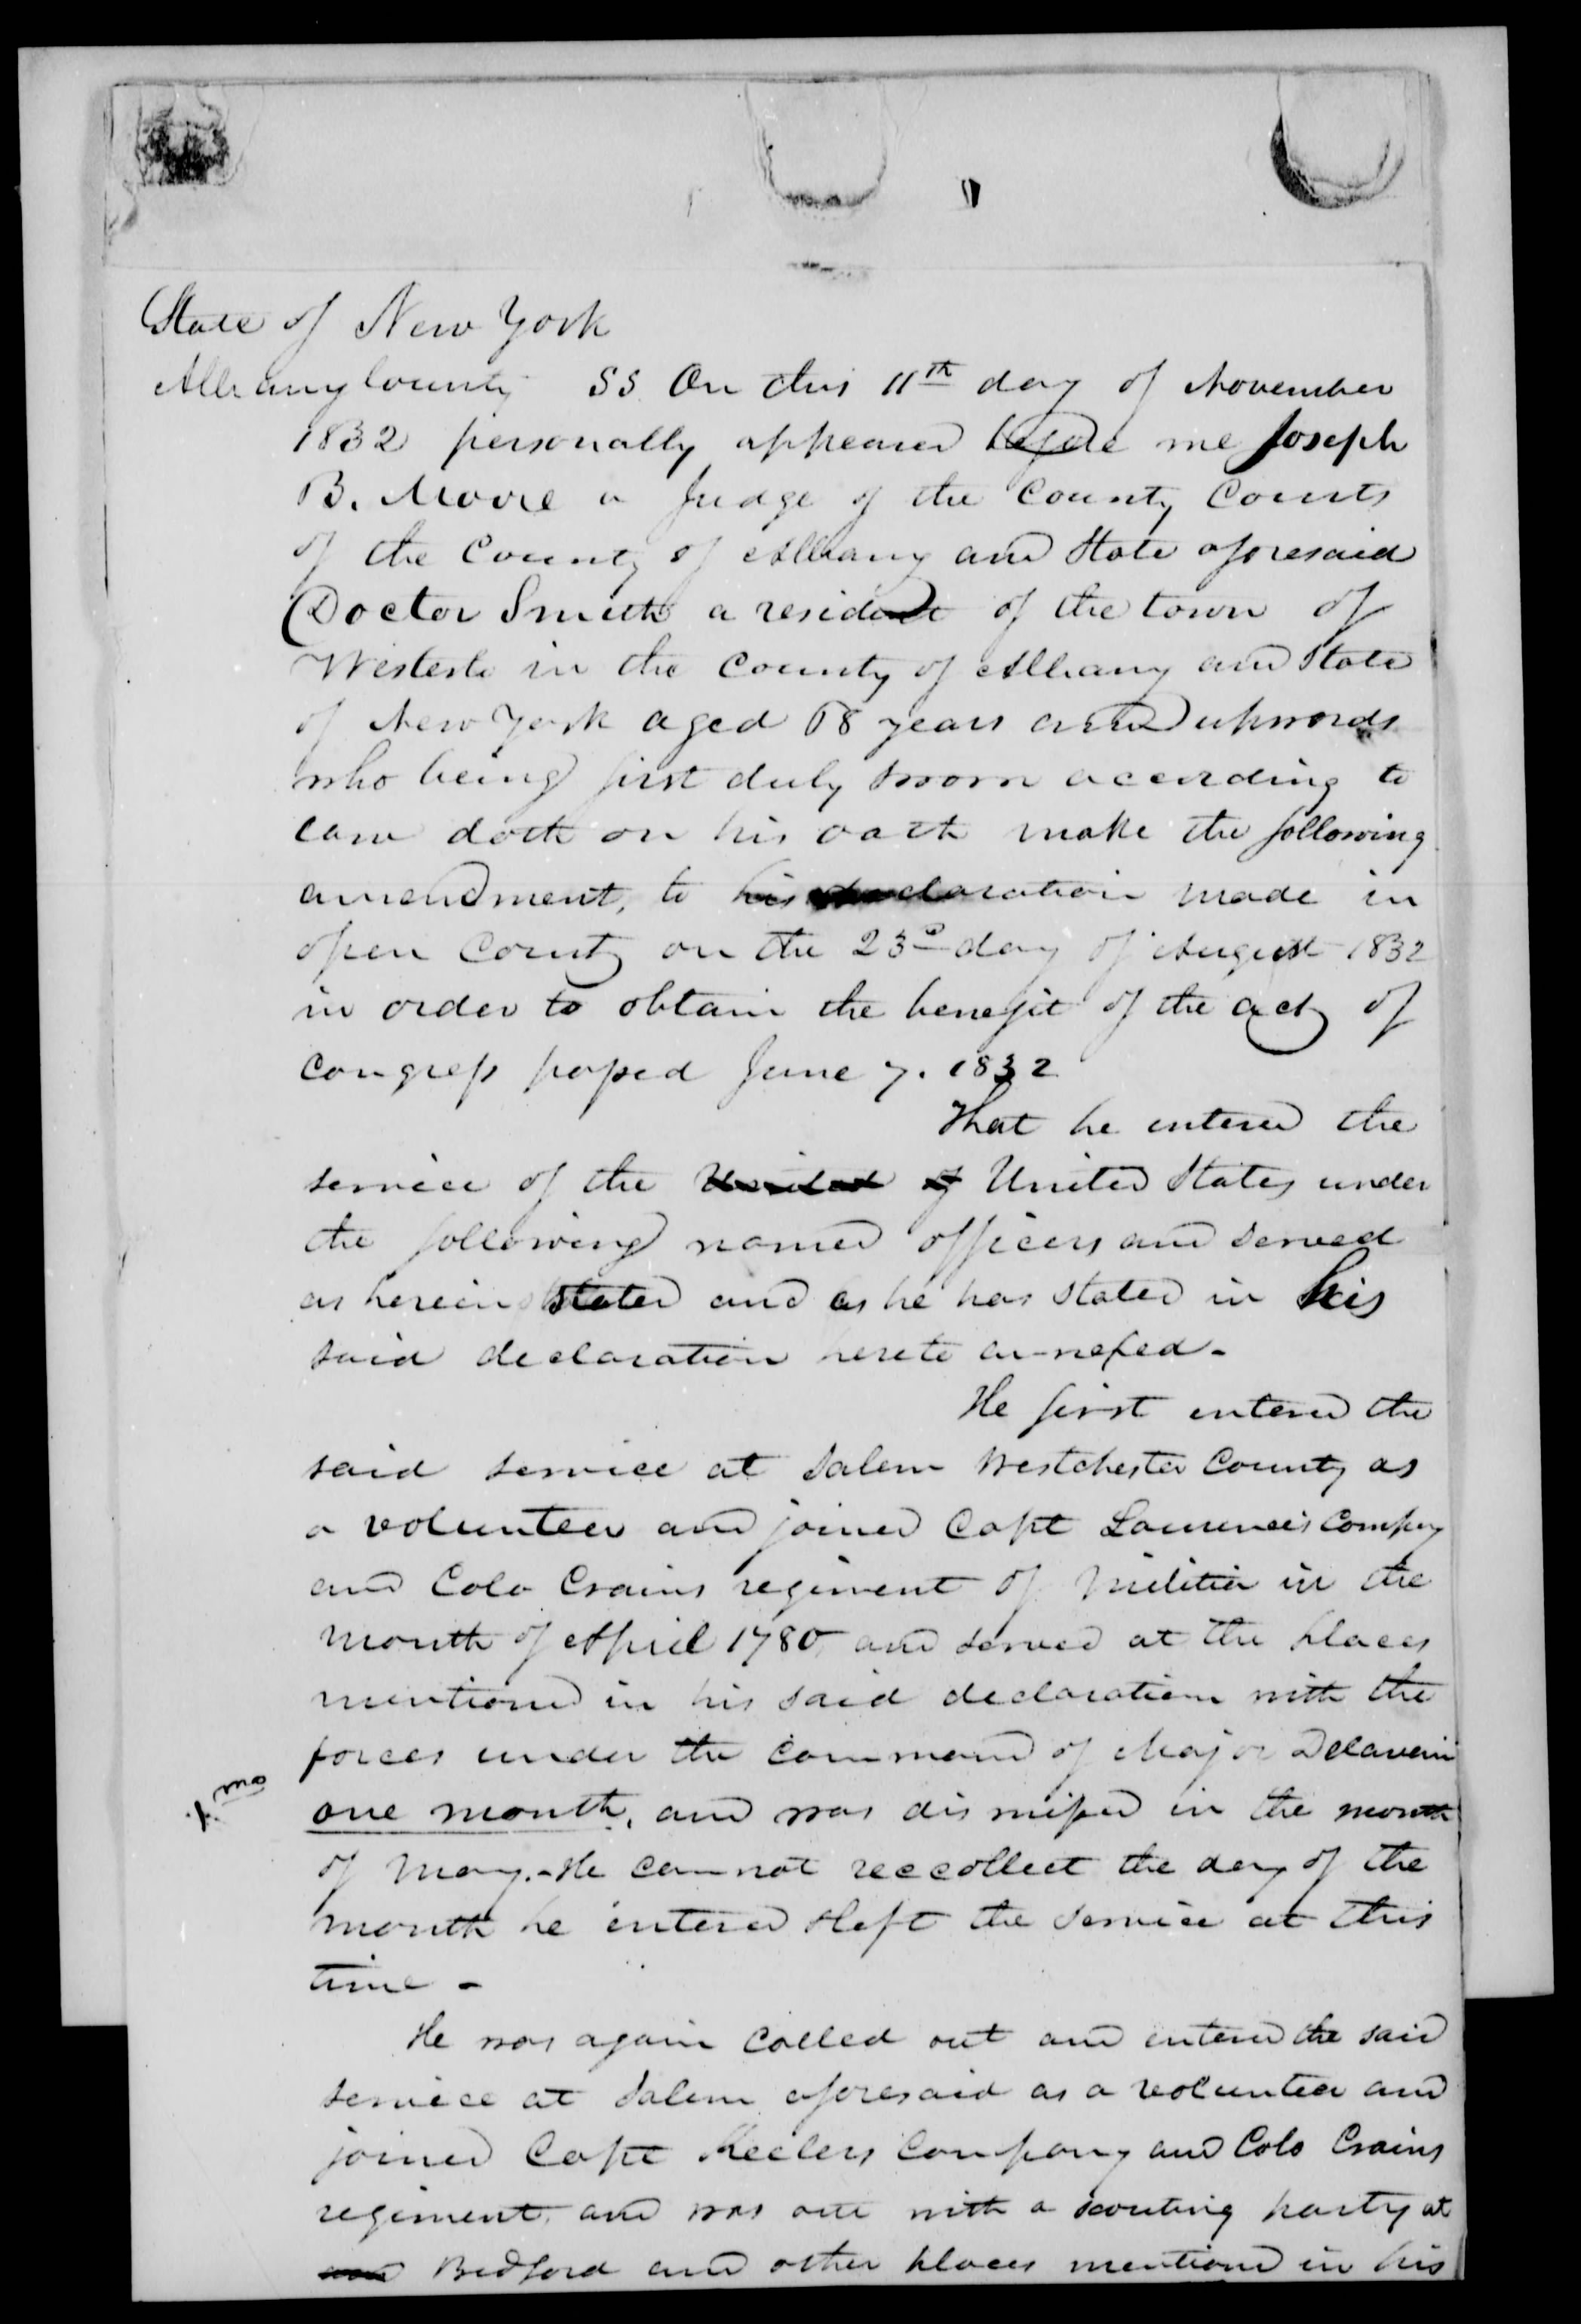 State of New York
Albany County SS. On this 11th day of November
1832 personally appeared before me Joseph
B. Moore a Judge of the County Courts
of the County of Albany and State aforesaid
Doctor Smith a resident of the town of
Westerlo in the County of Albany and State
of New York aged 68 years and upwards
who being first duly sworn according to
law doth on his oath make the following
amendment, to his declaration made in
open Court on the 23d day of August 1832
in order to obtain the benefit of the act of
Congress passed June 7. 1832
That he entered the
service of the United of United States under
the following named officers and served
as herein stated and as he has stated in his
said declaration hereto annexed -
He first entered the
said service at Salem Westchester County as
a volunteer and joined Capt Lawrence's Company
and Colo Crains regiment of Militia in the
month of April 1780 and served at the places
mentioned in his said declaration with the
forces under the command of Major Delavan
1. mo
one month, and was dismissed in the month
of May. - He cannot reccollect the day of the
month he entered & left the service at this
time -
He was again called out and entered the said
service at Salem aforesaid as a volunteer and
joined Capt Keelers Company and Colo Crains
regiment, and was out with a scouting party at
and Bedford and other places mentioned in his